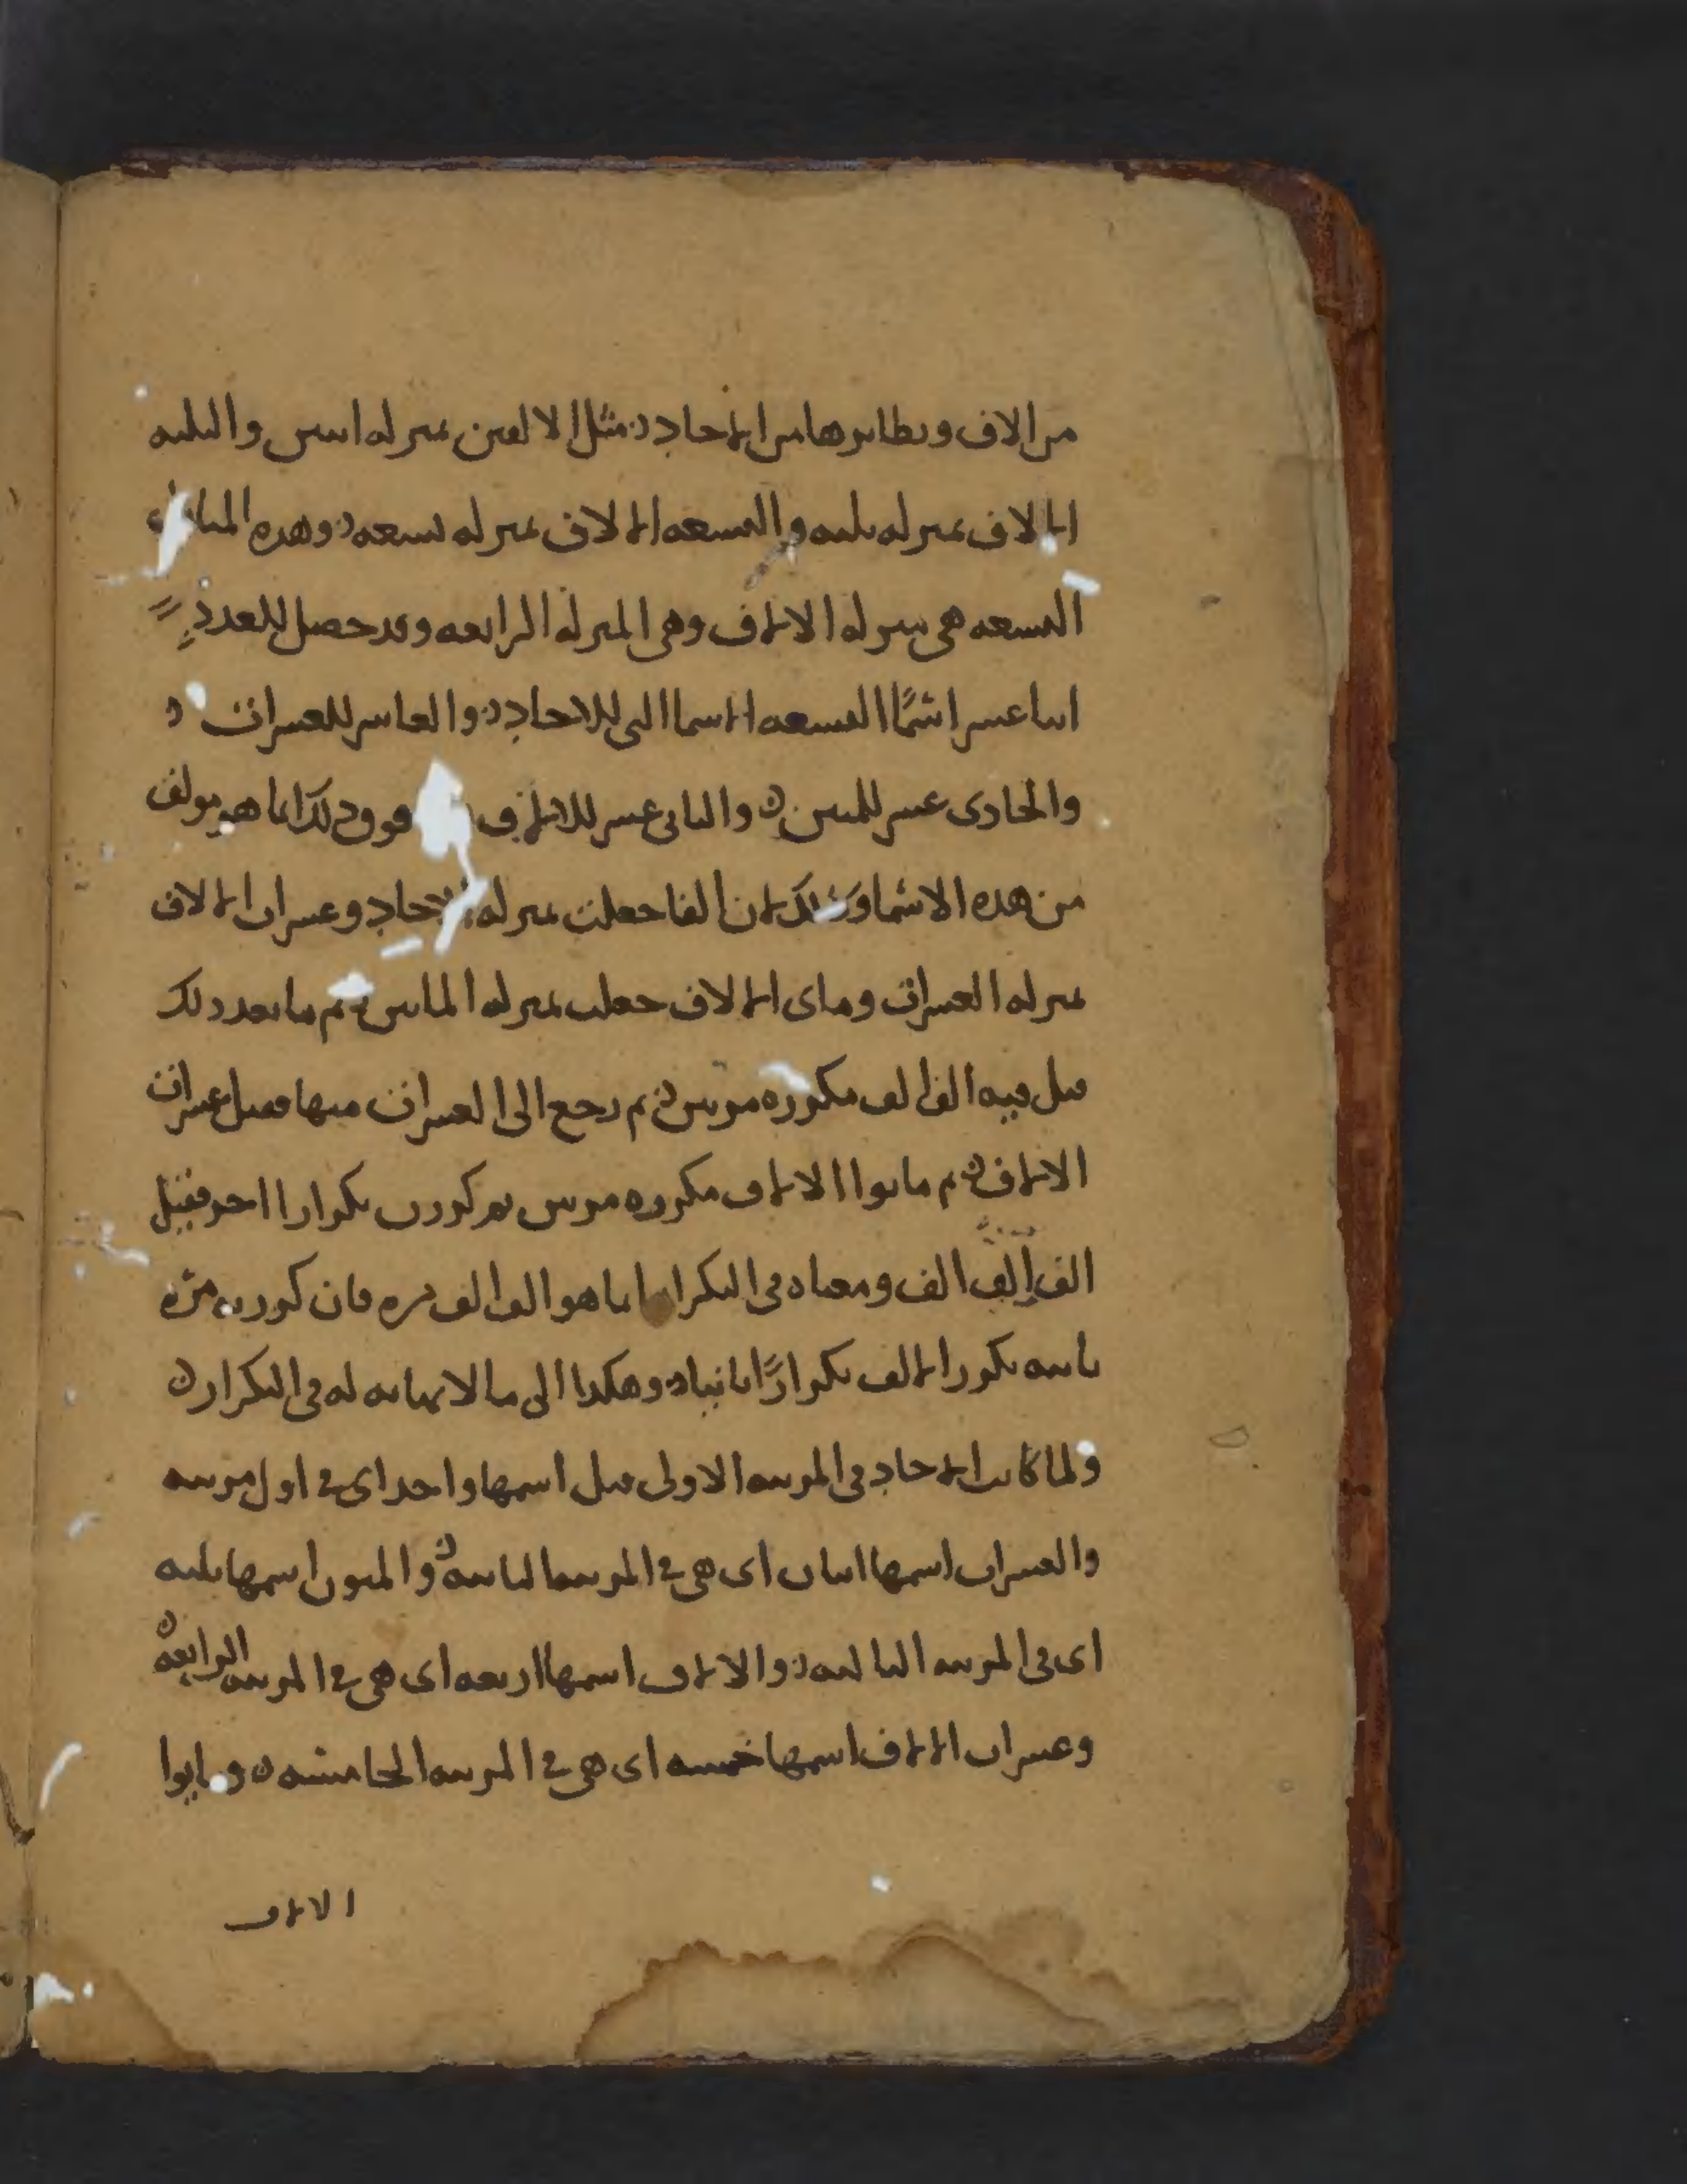 من الالاف ونظايرها من الاحاد مثل الالفين بمنزلة اثنين والثلثة
الالاف بمنزلة ثلثة والتسعة الالاف بمنزلة تسعة وهذه المنازل
التسعة هي منزلة الالاف وهي المنزلة الرابعة وقد حصل للعدد
اثنا عشر اسمًا التسعة الاسما التي للاحاد والعاشر للعشرات
والحادى عشر للمئين والثانى عشر للالاف فوق ذلك انما هو مولف
من هذه الاسما وذلك ان الفا جعلت بمنزلة الاحاد وعشرات الالاف
بمنزلة العشرات ومای الالاف جعلت بمنزلة الماىين ثم ما بعد ذلك
قيل فيه الف الف مكررة مرتين ثم رجع الى العشرات منها فقيل عشرات
الالاف ثم مايوا الالاف مكررة مرتين ثم كررت تكرارا اخر فقيل
الف الف الف ومعناه في التكرار انما هو الف الف مره فان كررت مرّه
ثانية تكرر الالف تكرارًا ثانيا وهكذا الى ما لا نهاية له في التكرار
ولما كانت الاحاد في المرتبة الاولى قيل اسمها واحد اى في اول مرتبة
والعشرات اسمها اثنان اى هي في المرتبة الثانية والمئون اسمها ثلثة
اى في المرتبة الثالثة والالاف اسمها اربعة اى هي في المرتبة الرابعة
وعشرات الالاف اسمها خمسة اى هي في المرتبة الخامسة ومايوا
الالاف